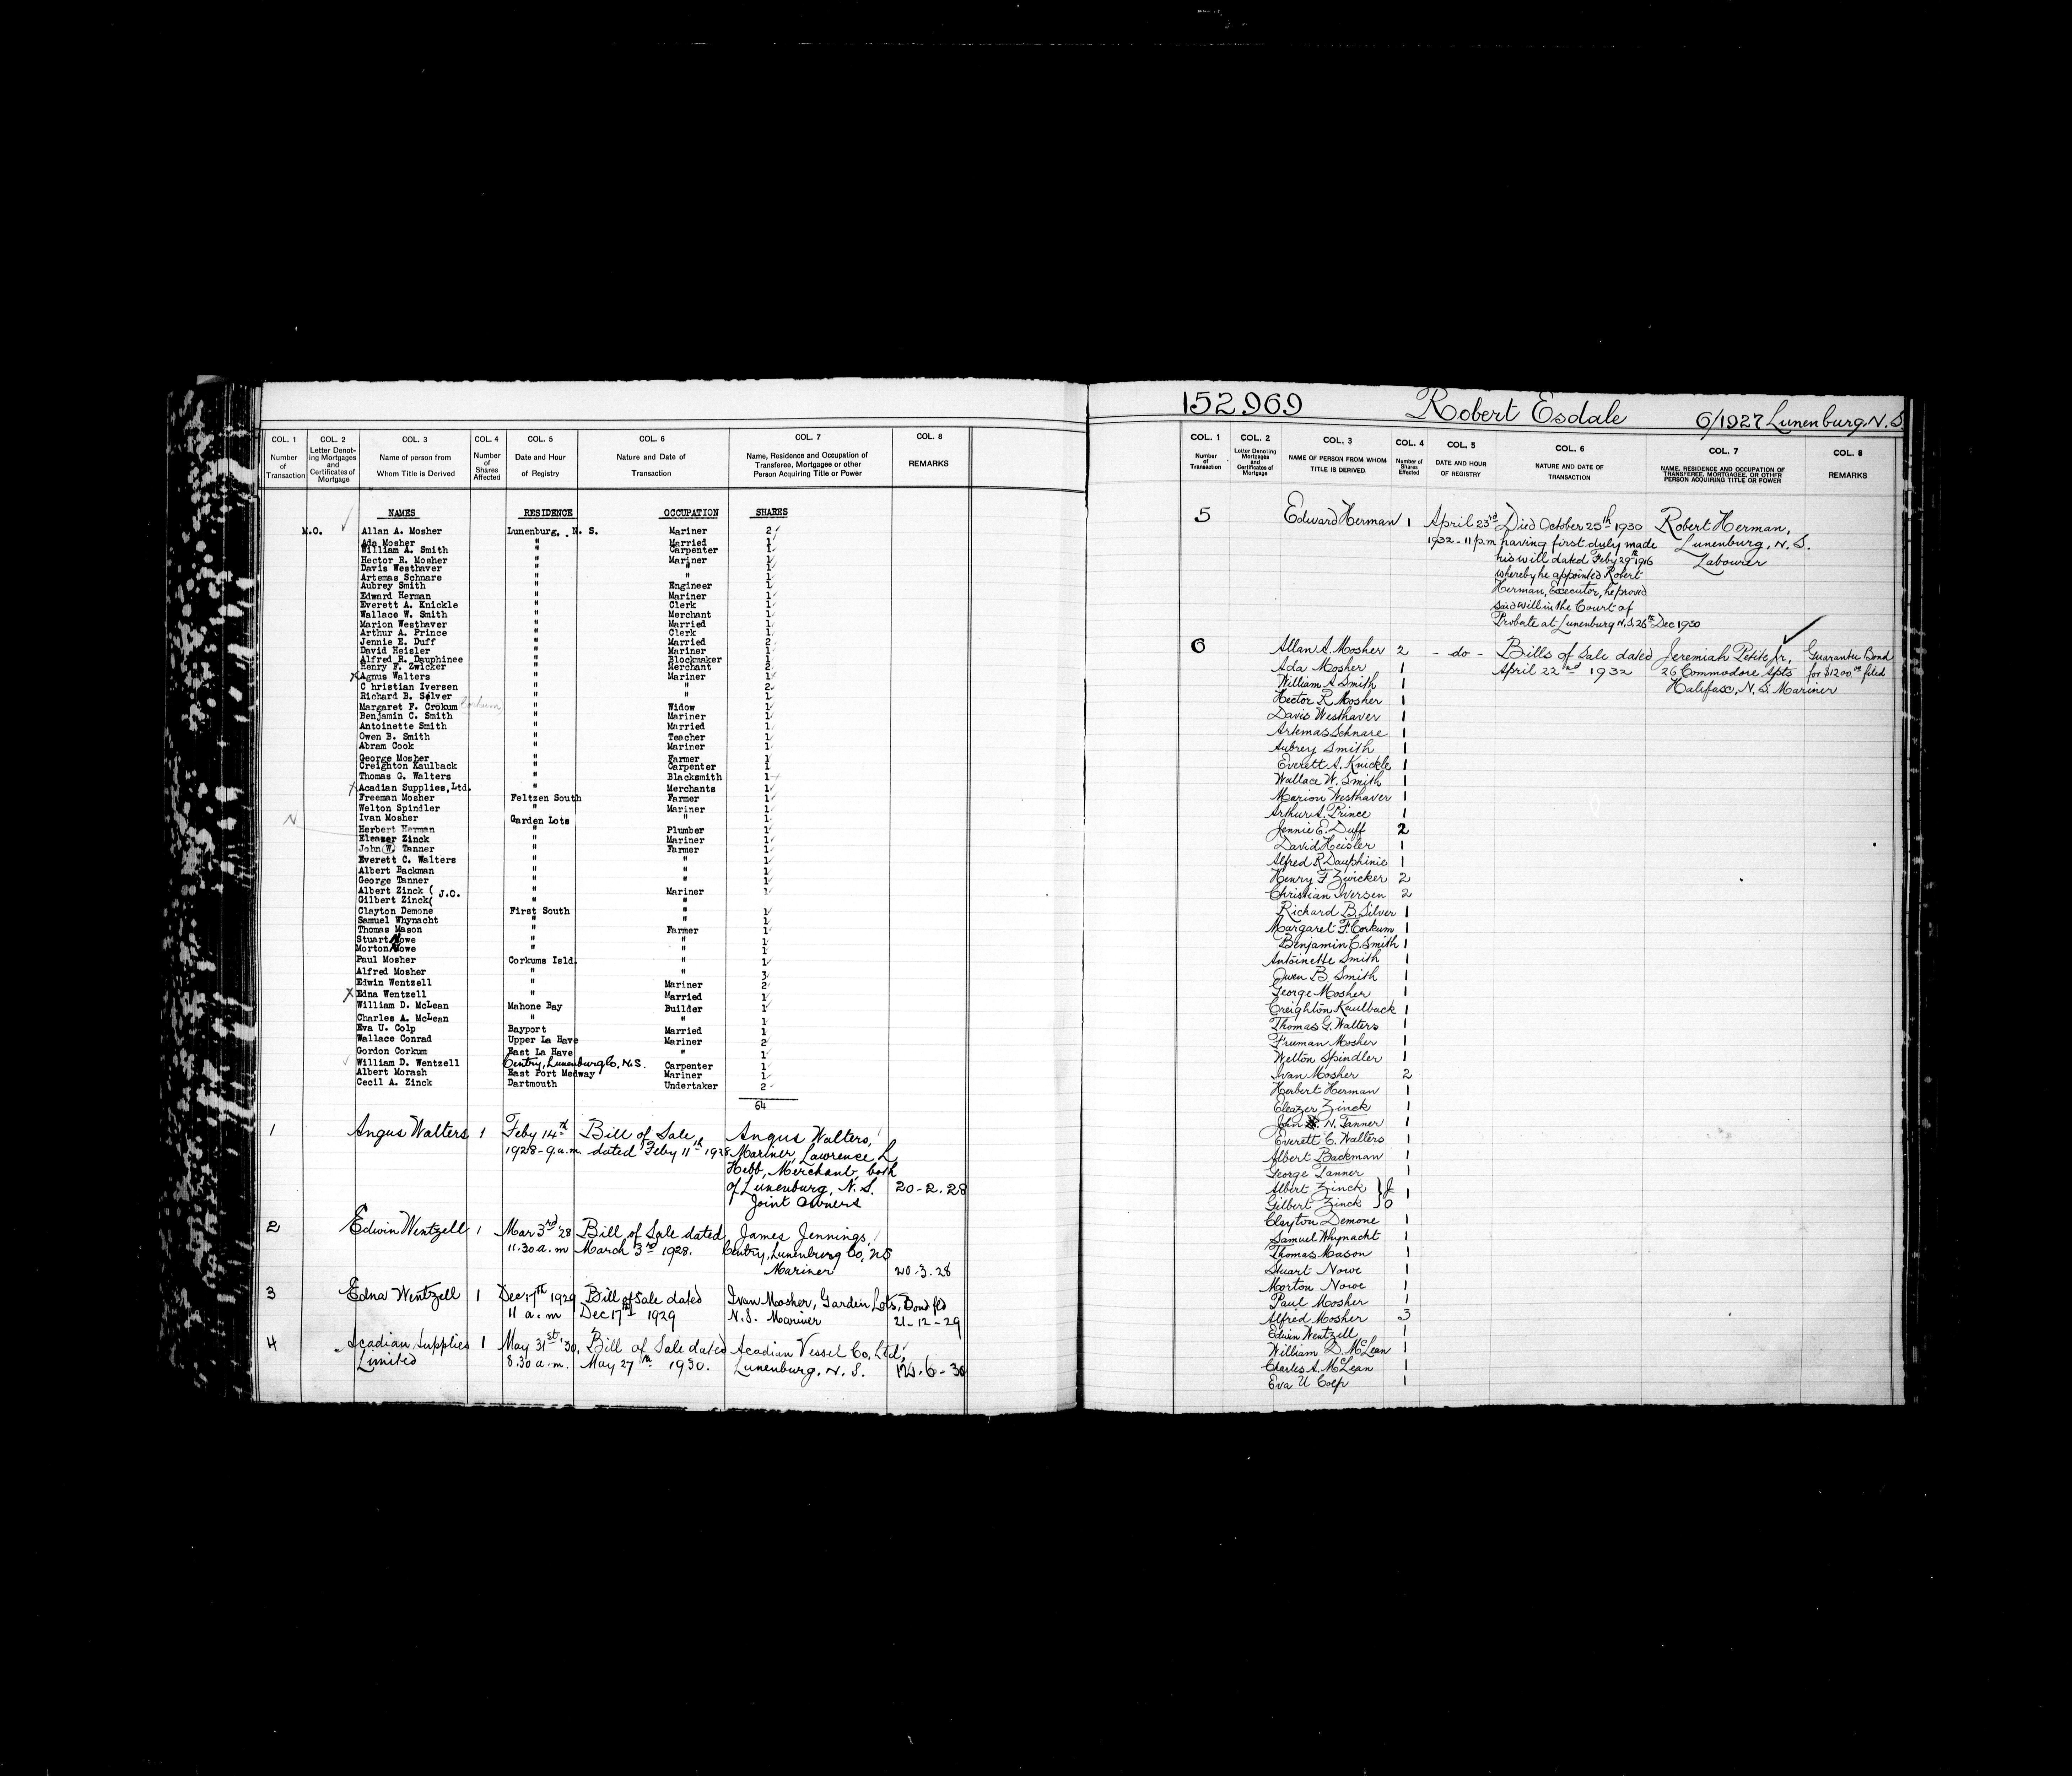 COL. 1 COL. 2 COL. 3 COL. 4 COL. 5 COL. 6 COL. 7 COL. 8
Number of Transaction Letter Denoting Mortgages and Certificates of Mortgage Name of person from Whom Title is Derived Number of Shares Affected Date and Hour of Registry Nature and Date of Transaction Name, Residence and Occupation of Transferee, Mortgagee or other Person Acquiring Title or Power REMARKS
NAMES RESIDENCE OCCUPATION SHARES
M.O. Allan A. Mosher Lunenburg, N. S. Mariner 2
Ada Mosher " Married 1
William A. Smith " Carpenter 1
Hector R. Mosher " Mariner 1
Davis Westhaver " " 1
Artemas Schnare " " 1
Aubrey Smith " Engineer 1
Edward Herman " Mariner 1
Everett A. Knickle " Clerk 1
Wallace W. Smith " Merchant 1
Marion Westhaver " Married 1
Arthur A. Prince " Clerk 1
Jennie E. Duff " Married 2
David Heisler " Mariner 1
Alfred R. Dauphinee " Blockmaker 1
Henry F. Zwicker " Merchant 2
X Agnus Walters " Mariner 1
C hristian Iversen " " 2
Richard B. Silver " " 1
Margaret F. Crokum Corkum " Widow 1
Benjamin C. Smith " Mariner 1
Antoinette Smith " Married 1
Owen B. Smith " Teacher 1
Abram Cook " Mariner 1
George Mosher " Farmer 1
Creighton Kaulback " Carpenter 1
Thomas G. Walters " Blacksmith 1
X Acadian Supplies, Ltd. " Merchants 1
Freeman Mosher Feltzen South Farmer 1
Welton Spindler " Mariner 1
Ivan Mosher Garden Lots " 1
N
Herbert Herman " Plumber 1
Eleazer Zinck " Mariner 1
John W. Tanner " Farmer 1
Everett C. Walters " " 1
Albert Backman " " 1
George Tanner " " 1
Albert Zinck ( J.C. " Mariner 1
Gilbert Zinck( " "
Clayton Demone First South " 1
Samuel Whynacht " " 1
Thomas Mason " Farmer 1
Stuart Nowe " " 1
Morton Nowe " " 1
Paul Mosher Corkums Isld. " 1
Alfred Mosher " " 3
Edwin Wentzell " Mariner 2
X Edna Wentzell " Married 1
William D. McLean Mahone Bay Builder 1
Charles A. McLean " " 1
Eva U. Colp Bayport Married 1
Wallace Conrad Upper La Have Mariner 2
Gordon Corkum East La Have " 1
William D. Wentzell Centry, Lunenburg Co. N.S. Carpenter 1
Albert Morash East Port Medway Mariner 1
Cecil A. Zinck Dartmouth Undertaker 2
64
1 Angus Walters 1 Feby 14th Bill of Sale Angus Walters,
1928 - 9 a.m. dated Feby 11th 1928 Mariner, Lawrence L
Hebb, Merchant, both
of Lunenburg, N. S. 20-2.28
Joint Owners
2 Edwin Wentzell 1 Mar 3rd '28 Bill of Sale dated James Jennings,
11.30 a.m March 3rd 1928. Centry, Lunenburg Co, NS
Mariner 20.3.28
3 Edna Wentzell 1 Dec 17th 1929 Bill of Sale dated Ivan Mosher, Garden Lots, Bond fld
11 a.m Dec 17th 1929 N.S. Mariner 21-12-29
4 Acadian Supplies 1 May 31st '30, Bill of Sale dated Acadian Vessel Co, Ltd,
Limited 8.30 a.m. May 27th 1930. Lunenburg, N. S.
152969 Robert Esdale 6/1927 Lunenburg, N. S.
COL. 1 COL. 2 COL. 3 COL. 4 COL. 5 COL. 6 COL. 7 COL. 8
Number of Transaction Letter Denoting Mortgages and Certificates of Mortgage NAME OF PERSON FROM WHOM TITLE IS DERIVED Number of Shares Effected DATE AND HOUR OF REGISTRY NATURE AND DATE OF TRANSACTION NAME, RESIDENCE AND OCCUPATION OF TRANSFEREE, MORTGAGEE, OR OTHER PERSON ACQUIRING TITLE OR POWER REMARKS
5 Edward Herman 1 April 23rd Died October 25th 1930 Robert Herman,
1932 - 11 p.m having first duly made Lunenburg, N. S.
his will dated Feby 29th 1916 Labourer
whereby he appointed Robert
Herman, Executor, he proved
said will in the Court of
Probate at Lunenburg N.S. 26th Dec 1930
6 Allan A. Mosher 2 - do - Bills of Sale dated Jeremiah Petite, Jr, Guarantee Bond
Ada Mosher 1 April 22nd 1932 26 Commodore Apts for $1200.00 filed
William A Smith 1 Halifax, N. S. Mariner
Hector R Mosher 1
Davis Westhaver 1
Artemas Schnare 1
Aubrey Smith 1
Everett A. Knickle 1
Wallace W. Smith 1
Marion Westhaver 1
Arthur A. Prince 1
Jennie E. Duff 2
David Heisler 1
Alfred R Dauphinie 1
Henry F Zwicker 2
Christian Iversen 2
Richard B. Silver 1
Margaret F. Corkum 1
Benjamin C. Smith 1
Antoinette Smith 1
Owen B. Smith 1
George Mosher 1
Creighton Kaulback 1
Thomas G. Walters 1
Fruman Mosher 1
Welton Spindler 1
Ivan Mosher 2
Herbert Herman 1
Eleazer Zinck 1
John N. Tanner 1
Everett C. Walters 1
Albert Backman 1
George Tanner 1
Albert Zinck } J 1
Gilbert Zinck } O
Clayton Demone 1
Samuel Whynacht 1
Thomas Mason 1
Stuart Nowe 1
Morton Nowe 1
Paul Mosher 1
Alfred Mosher 3
Edwin Wentzell 1
William D. McLean 1
Charles A. McLean 1
Eva U Colp 1